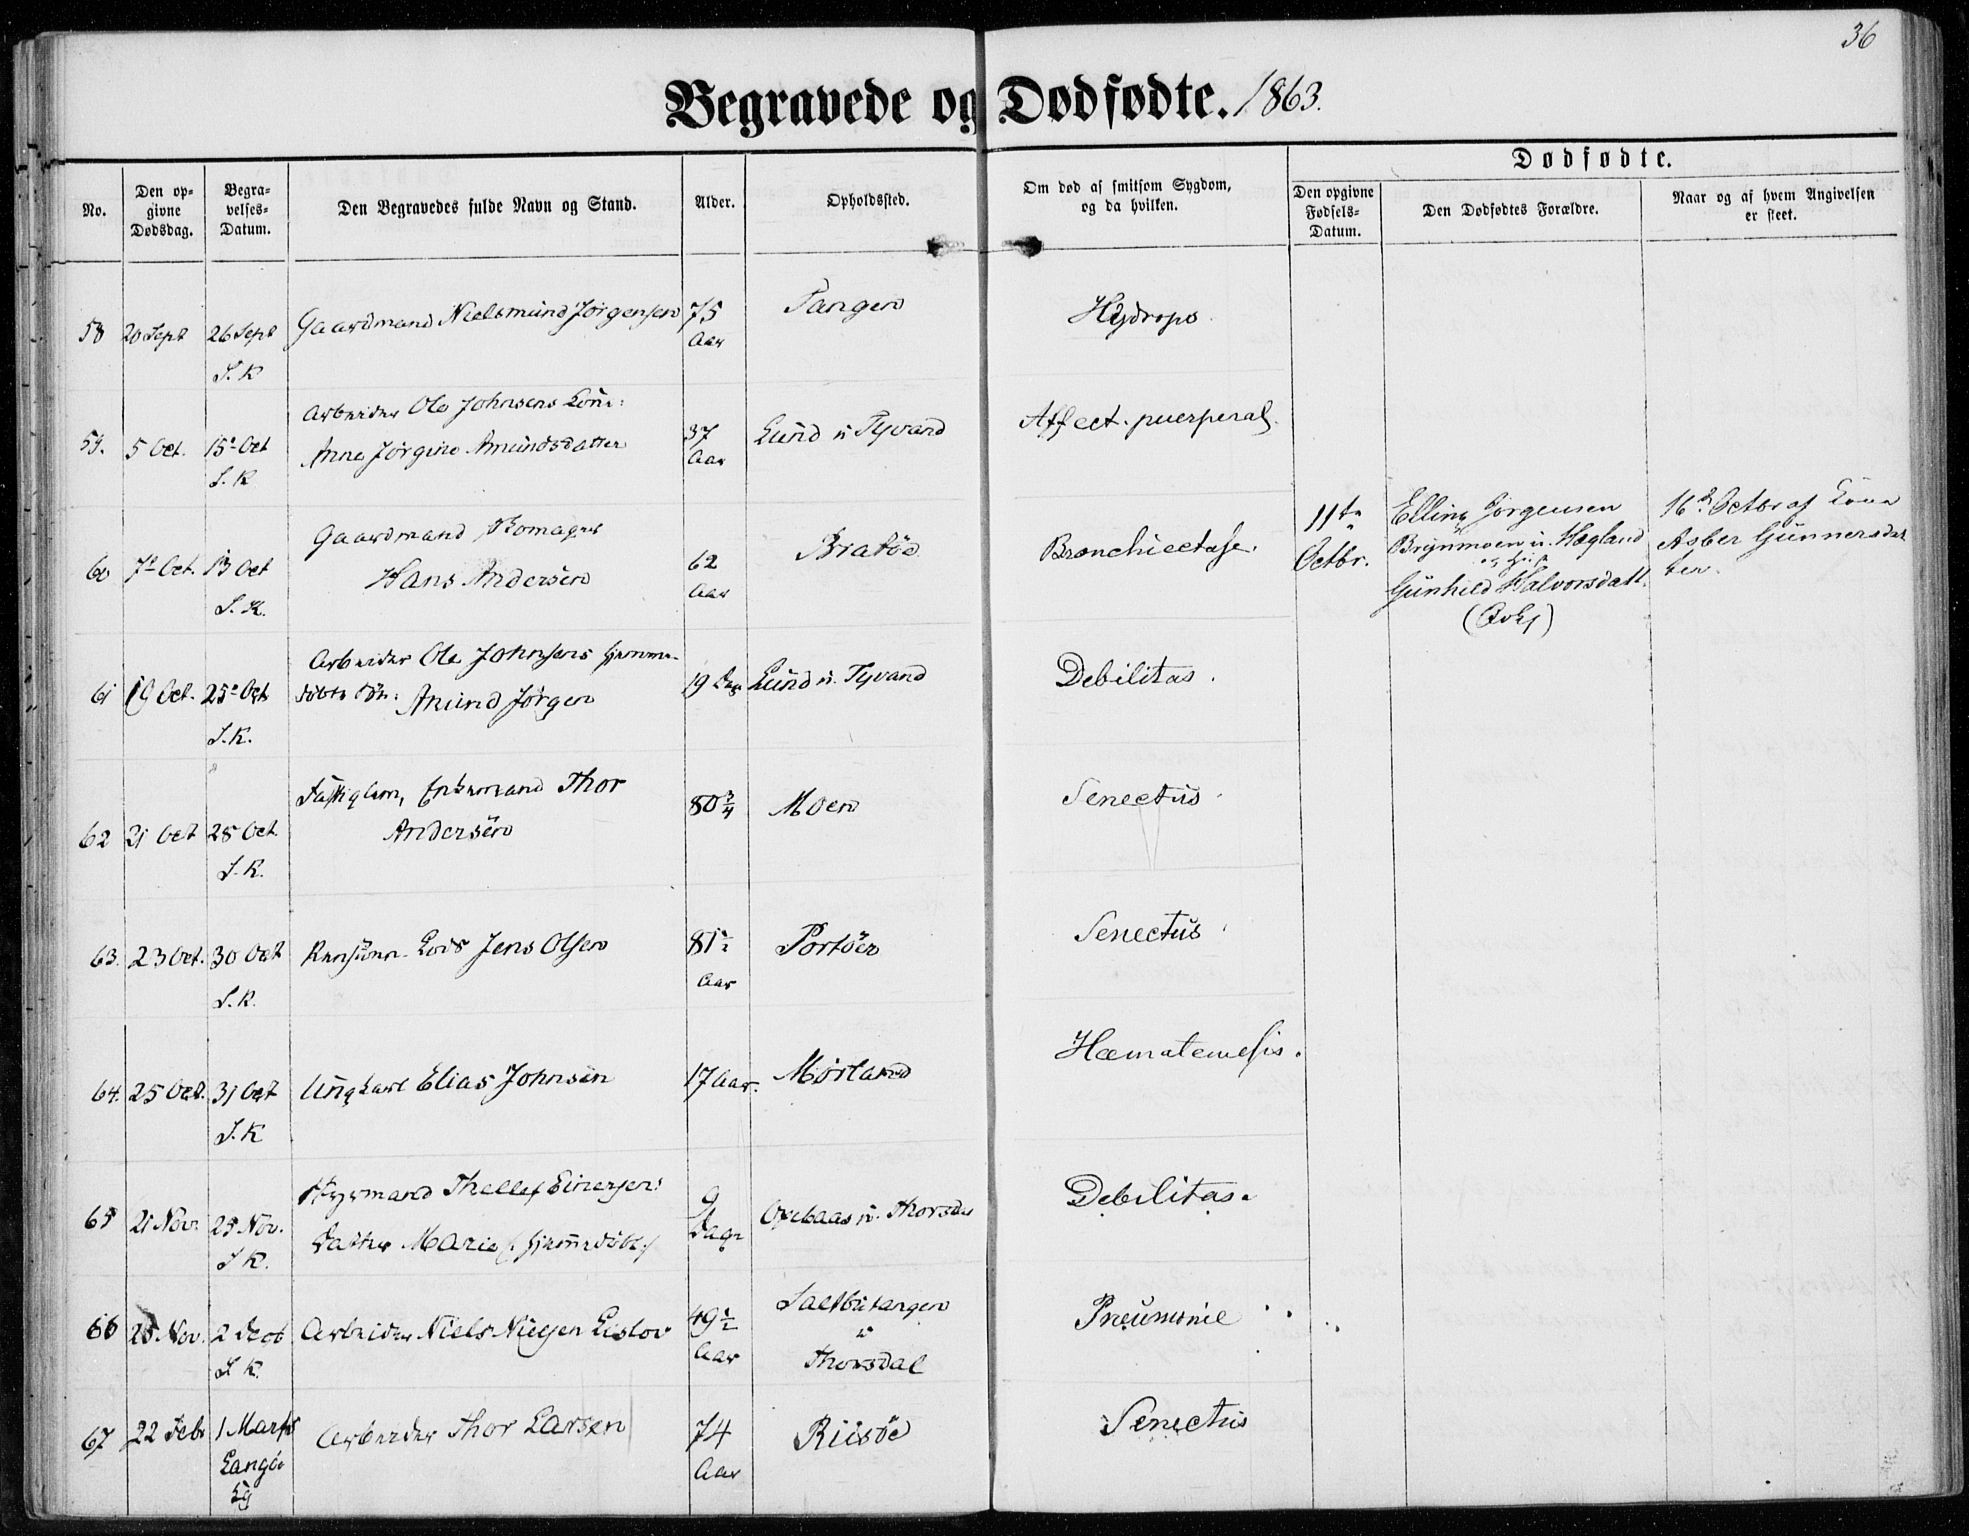 36
Begravede og Dødfødte. 1863.
No.
Den op-
givne
Dødsdag.
Begra-
velses-
Datum.
Den Begravedes fulde Navn og Stand.
Alder.
Opholdssted.
Om død af smitsom Sygdom,
og da hvilken.
Dødfødte.
Den opgivne
Fødsels-
Datum.
Den Dødfødtes Forældre.
Naar og af hvem Angivelsen
er skeet.
58 20 Sept 26 Sept Gaardmand Nielsmund Jørgensen 75 Tangen Hydrops.
Aar
S. K
Arbeider Ole Johnsens Kone:
59. 5 Oct. 15 Oct Anne Jørgine Amundsdatter 37 Lund u Tyvand Affect. puerperal.
Aar
S. K
Gaardmand
60 7 Oct. 13 Oct Hans Andersen 62 Bratøe Bronchiectasie.
Aar
S. K.
11te
Octbr.
Elling Jørgensen
Brynmoen u. Hegland
og Gift
Gunhild Halvorsdatt.
16 Octbr af Kone
Asber Gunnersdat
ter.
Arbeider Ole Johnsens hjemme-
døbte Søn:
61 19 Oct. 25 Oct Amund Jørgen 19 Dag Lund u. Tyvand Debilitas.
S. K.
Fattiglem, Enkemand Thor
62 21 Oct 28 Oct Andersen 80 3/4 Moen Senectus.
S. K.
63. 23 Oct. 30 Oct Lods Jens Olsen 81 1/2 Portøer Senectus.
Aar
S. K.
64. 25 Oct. 31 Oct Ungkarl Elias Johnsen 17 Aar. Mørland Hæmatemesis.
S. K
Styrmand Thellef Einersens
65 21 Nov. 25 Nov. Datter Marie (hjemmedøbt) 9 Dage u. Thorsdal Debilitas.
S K.
66 25 Nov. 2 Decb Arbeider Niels Lislov 49 1/2 Saltbutangen Pneumonie
u
Aar Thorsdal
S K.
67 22 Feb 1 Marts Arbeider Thor Larsen 74 Riisøe Senectus
Aar
Langø
Kg